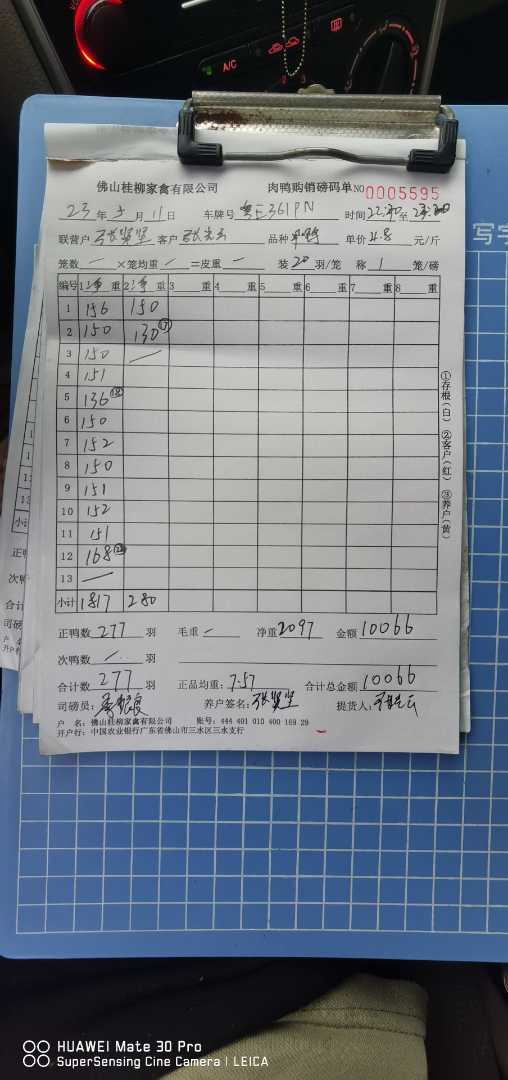 A/C
佛山桂柳家禽有限公司 肉鸭购销磅码单 NO 0005595
23年5月11日 车牌号 粤E361PN 时间22:20至
联营户 张坚坚 客户 品种 单价4.8元/斤
笼数 — ×笼均重 — =皮重 — 装20羽/笼 称1笼/磅
编号 1净重 2净重 3 重 4 重 5 重 6 重 7 重 8 重
1 156 150
2 150 130⑰
3 150 —
4 151
5 136⑱
6 150
7 152
8 150
9 151
10 152
11 151
12 168
13 —
小计 1817 280
正鸭数 277 羽 毛重 — 净重2097 金额10066
次鸭数 — 羽
合计数 277 羽 正品均重:7.57 合计总金额10066
司磅员: 养户签名: 提货人:
户 名:佛山桂柳家禽有限公司 账号:444 401 010 400 169 29
开户行:中国农业银行广东省佛山市三水区三水支行
①存根(白) ②客户(红) ③养户(黄)
写字
HUAWEI Mate 30 Pro
SuperSensing Cine Camera | LEICA